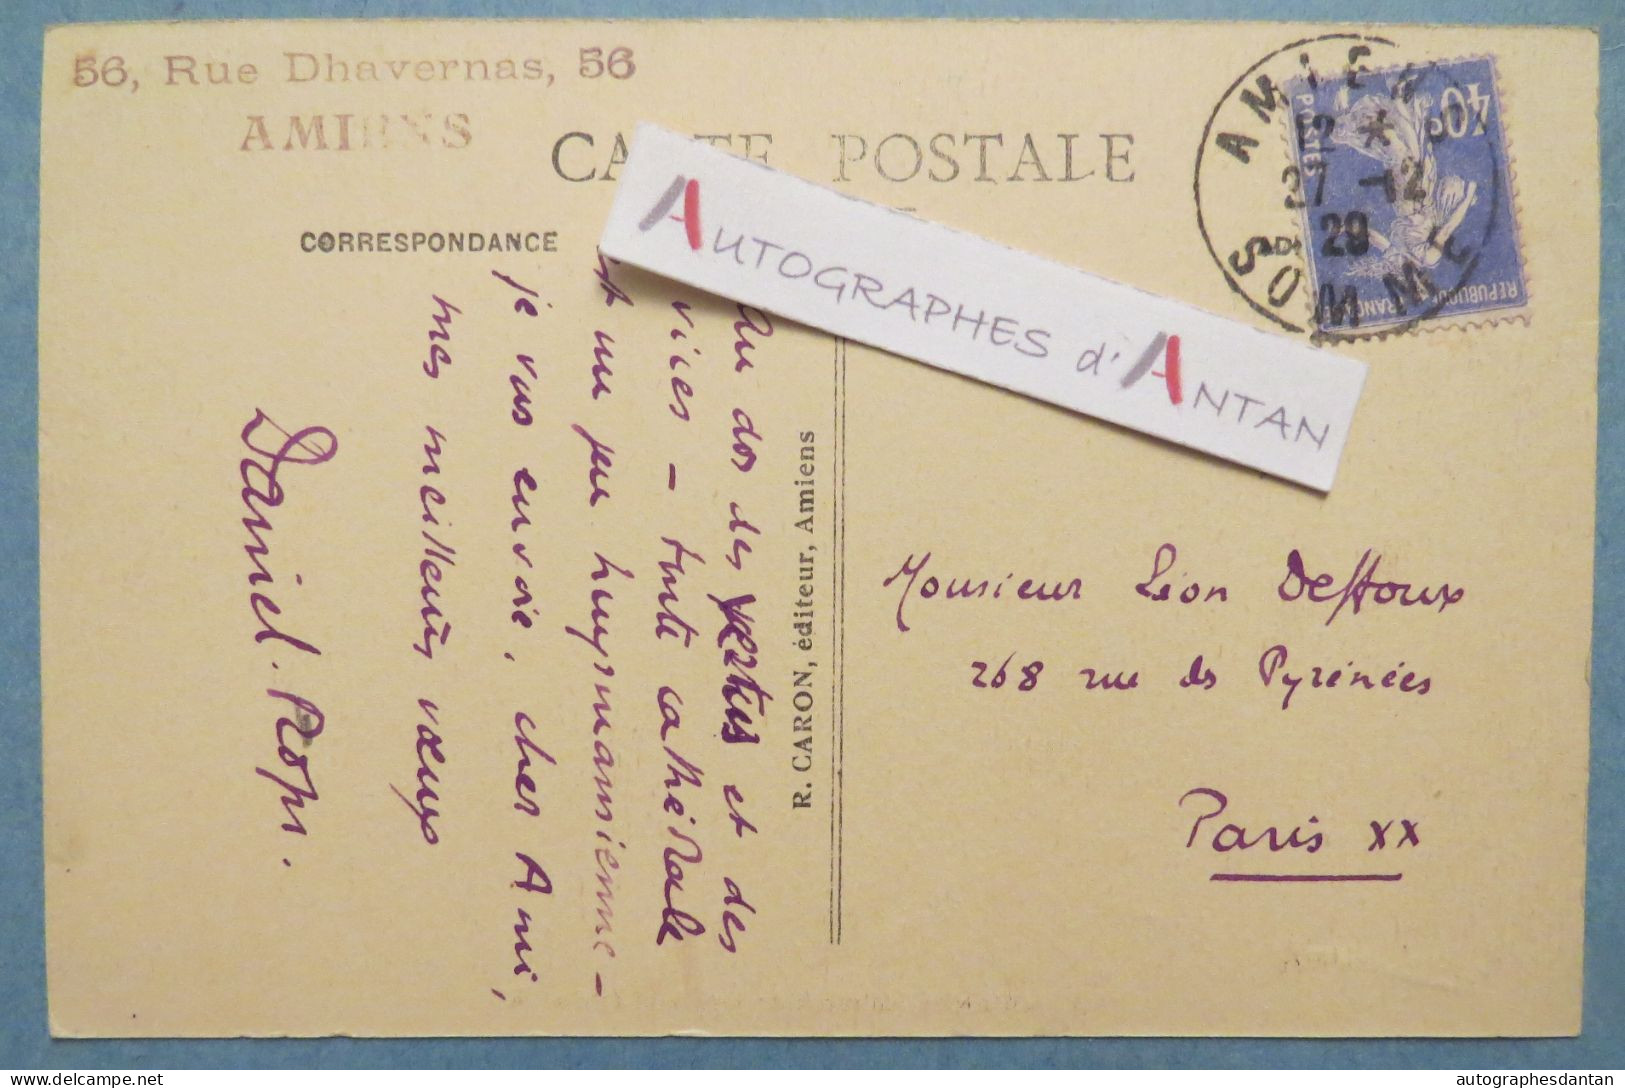 56, Rue Dhavernas, 56
AMIENS
CARTE POSTALE
CORRESPONDANCE
AUTOGRAPHES d'ANTAN
AMIENS
12 *
27 -12
29
SOMME
40c
POSTES
REPUBLIQUE FRANCAISE
Au dos des vertus et des
vices - toute cathédrale
est un peu huysmansienne -
je vous envoie, cher Ami,
mes meilleurs vœux
Daniel-Rops.
R. CARON, éditeur, Amiens
Monsieur Léon Deffoux
268 rue des Pyrénées
Paris XX
autographesdantan
www.delcampe.net
autographesdantan